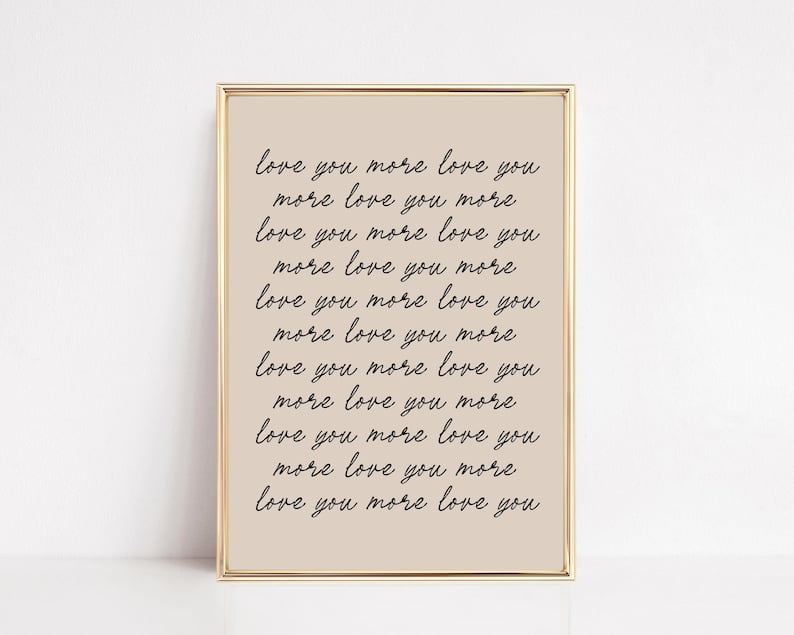 love you more love you
more love you more
love you more love you
more love you more
love you more love you
more love you more
love you more love you
more love you more
love you more love you
more love you more
love you more love you